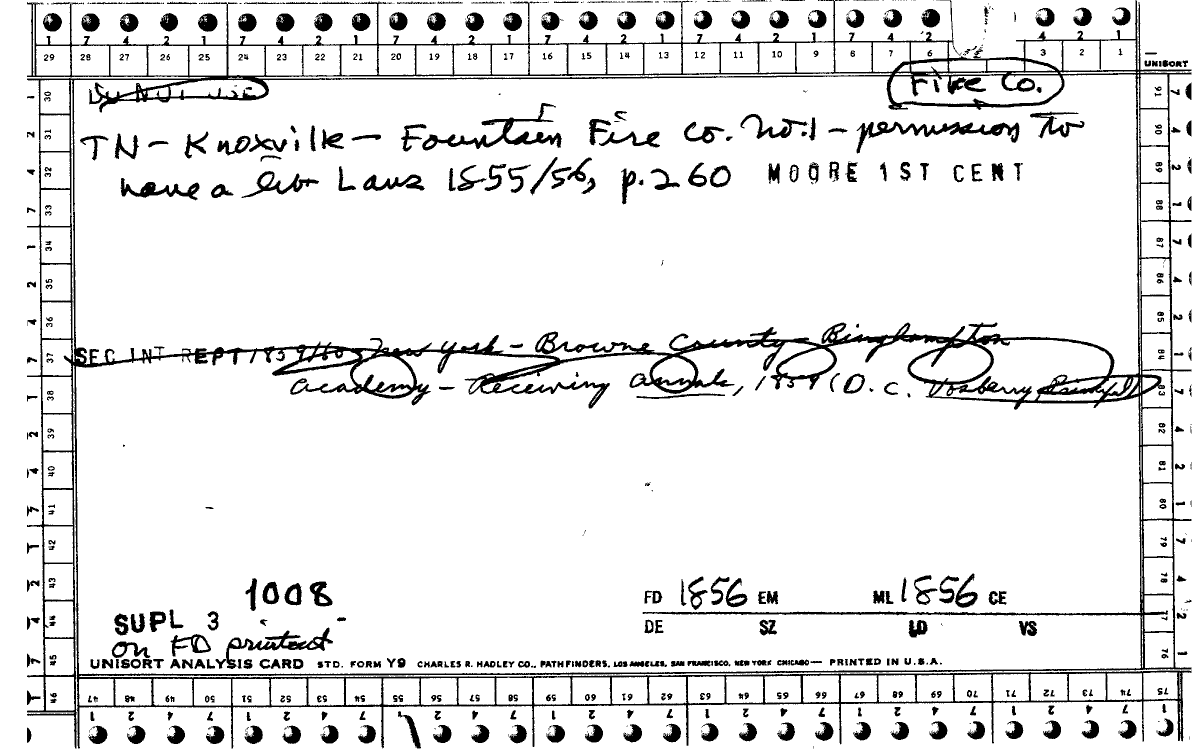 7 4 2 1 7 4 2 1 7 4 2 1 7 4 2 1 7 4 2 1 7 4 2 4 2 1
29 28 27 26 25 24 23 22 21 20 19 18 17 16 15 14 13 12 11 10 9 8 7 6 3 2 1
UNISORT
DO NOT USE
Fire Co.
TN - Knoxville - Fountain Fire Co. No. 1 - permission to
have a lib Laws 1855/56, p. 260 MOORE 1ST CENT
SEC INT REPT 1859/60 New York - Browne County - Binghampton
Academy - Receiving Annals, 1859 (D. C. Vosberry Principal)
1008
SUPL 3
on FD printout
FD 1856 EM ML 1856 CE
DE SZ LD VS
UNISORT ANALYSIS CARD STD. FORM Y9 CHARLES R. HADLEY CO., PATHFINDERS, LOS ANGELES, SAN FRANCISCO, NEW YORK CHICAGO — PRINTED IN U.S.A.
47 48 49 50 51 52 53 54 55 56 57 58 59 60 61 62 63 64 65 66 67 68 69 70 71 72 73 74 75